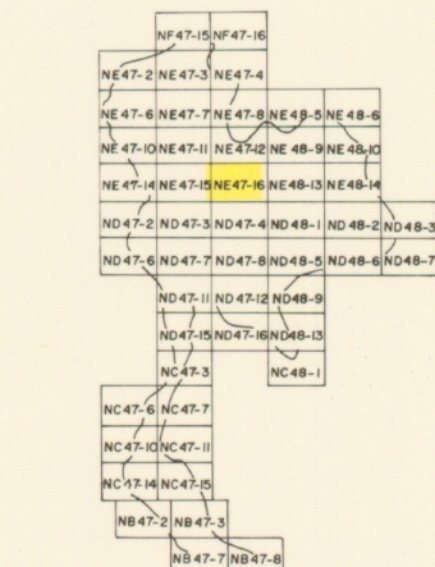 NF47-15 NF47-16
NE47-2 NE47-3 NE47-4
NE47-6 NE47-7 NE47-8 NE48-5 NE48-6
NE47-10 NE47-11 NE47-12 NE48-9 NE48-10
NE47-14 NE47-15 NE47-16 NE48-13 NE48-14
ND47-2 ND47-3 ND47-4 ND48-1 ND48-2 ND48-3
ND47-6 ND47-7 ND47-8 ND48-5 ND48-6 ND48-7
ND47-11 ND47-12 ND48-9
ND47-15 ND47-16 ND48-13
NC47-3 NC48-1
NC47-6 NC47-7
NC47-10 NC47-11
NC47-14 NC47-15
NB47-2 NB47-3
NB47-7 NB47-8